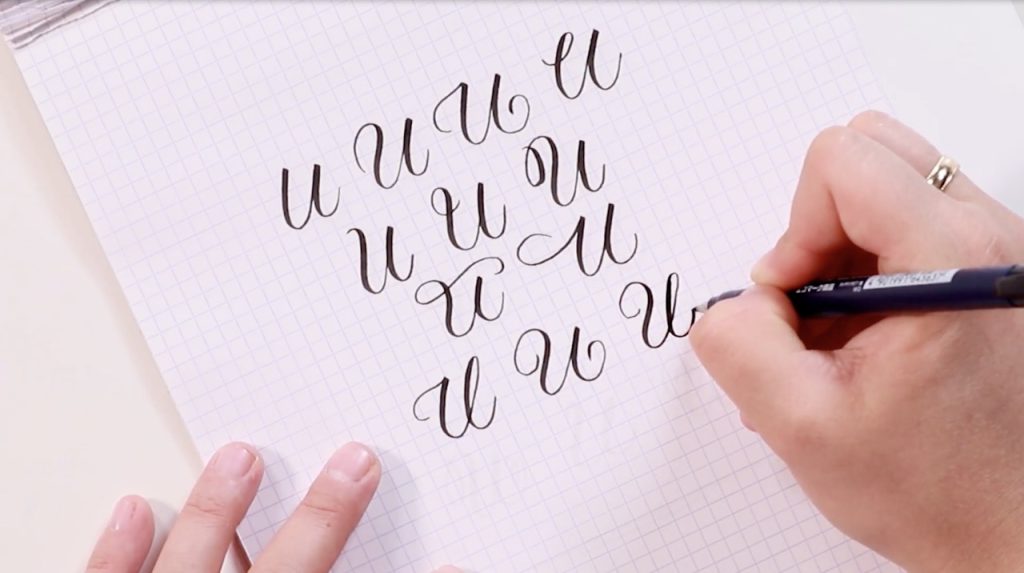 U U U U
U U U
U U
U U U